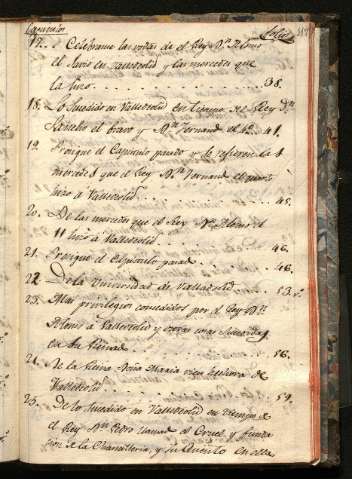 Capitulos folios
17. Celebranse las vodas de el Rey Dn. Alonso
el Savio en Valladolid y las mercedes que
la hizo 38.
18. Lo sucedido en Valladolid en tiempo del Rey Dn.
Sancho el bravo y Dn. Fernando el 4o. 41.
19. Prosigue el Capitulo pasado y se refieren las
mercedes que el Rey Dn. Fernando el quarto
hizo a Valladolid 45.
20. De las mercedes que el Rey Dn. Alonso el
11 hizo á Valladolid 46.
21. Prosigue el Capitulo pasado 48.
22 De la Universidad de Valladolid 53.
23. Mas privilegios concedidos por el Rey Dn.
Alonso á Valladolid y otras cosas sucedidas
en su tiempo 56.
24. De la Reina Doña Maria Señora de
Valladolid 59.
25. De lo sucedido en Valladolid en tiempo de
el Rey Dn. Pedro llamado el Cruel, y funda
cion de la Chancilleria, y su asiento en ella